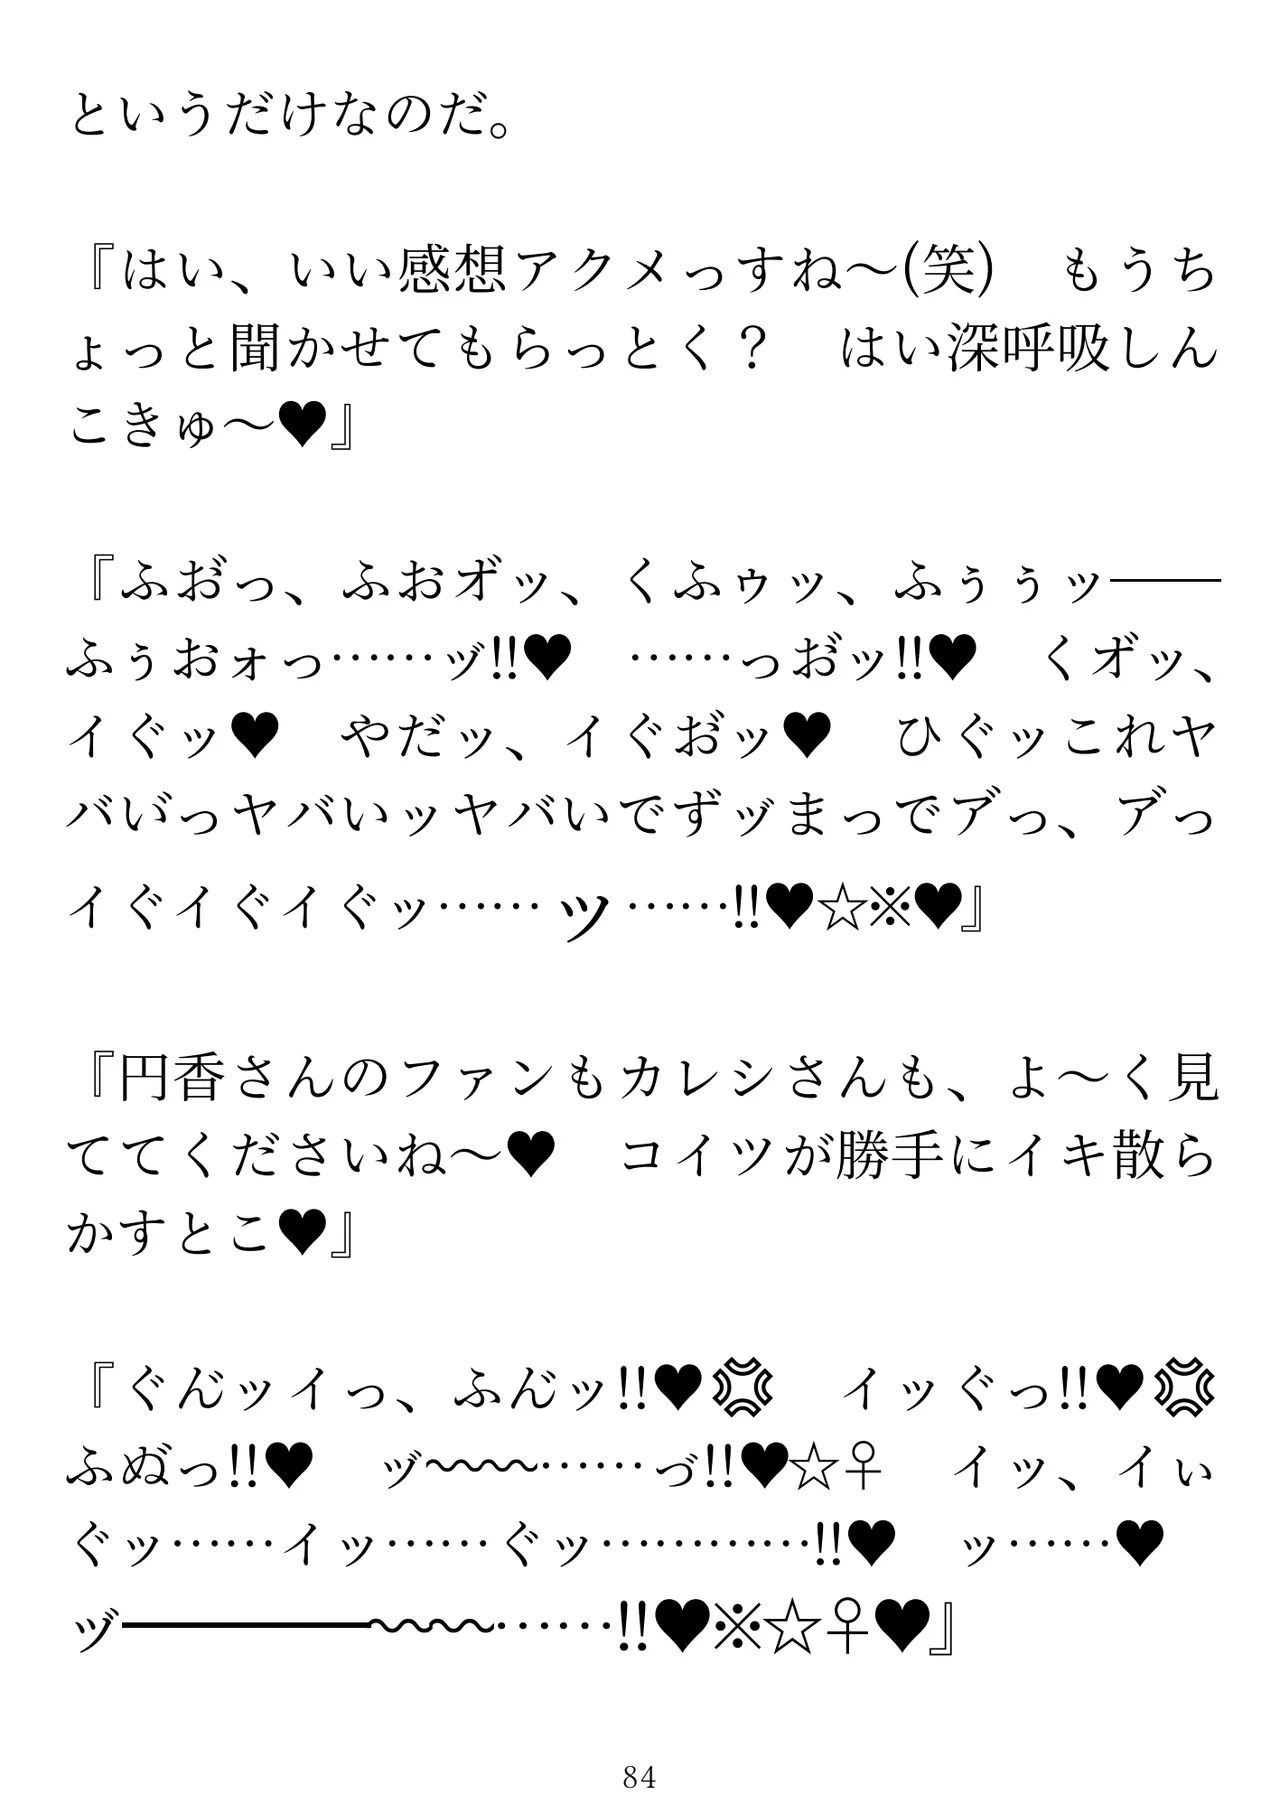 というだけなのだ。
『はい、いい感想アクメっすね～(笑)　もうち
ょっと聞かせてもらっとく？　はい深呼吸しん
こきゅ～♥』
『ふお゛っ、ふおオ゛ッ、くふゥッ、ふぅぅッ――
ふぅおォっ……ッ゛!!♥　……っお゛ッ!!♥　くオ゛ッ、
イぐッ♥　やだッ、イぐお゛ッ♥　ひぐッこれヤ
バい゛っヤバいッヤバいでずッ゛まっでア゛っ、ア゛っ
イぐイぐイぐッ……ッ……!!♥☆※♥』
『円香さんのファンもカレシさんも、よ～く見
ててくださいね～♥　コイツが勝手にイキ散ら
かすとこ♥』
『ぐん゛ッイっ、ふん゛ッ!!♥💢　イッぐっ!!♥💢
ふぬ゛っ!!♥　ッ゛〰〰……っ゛!!♥☆♀　イッ、イぃ
ぐッ……イッ……ぐッ…………!!♥　ッ……♥
ッ゛――――〰〰……!!♥※☆♀♥』
84